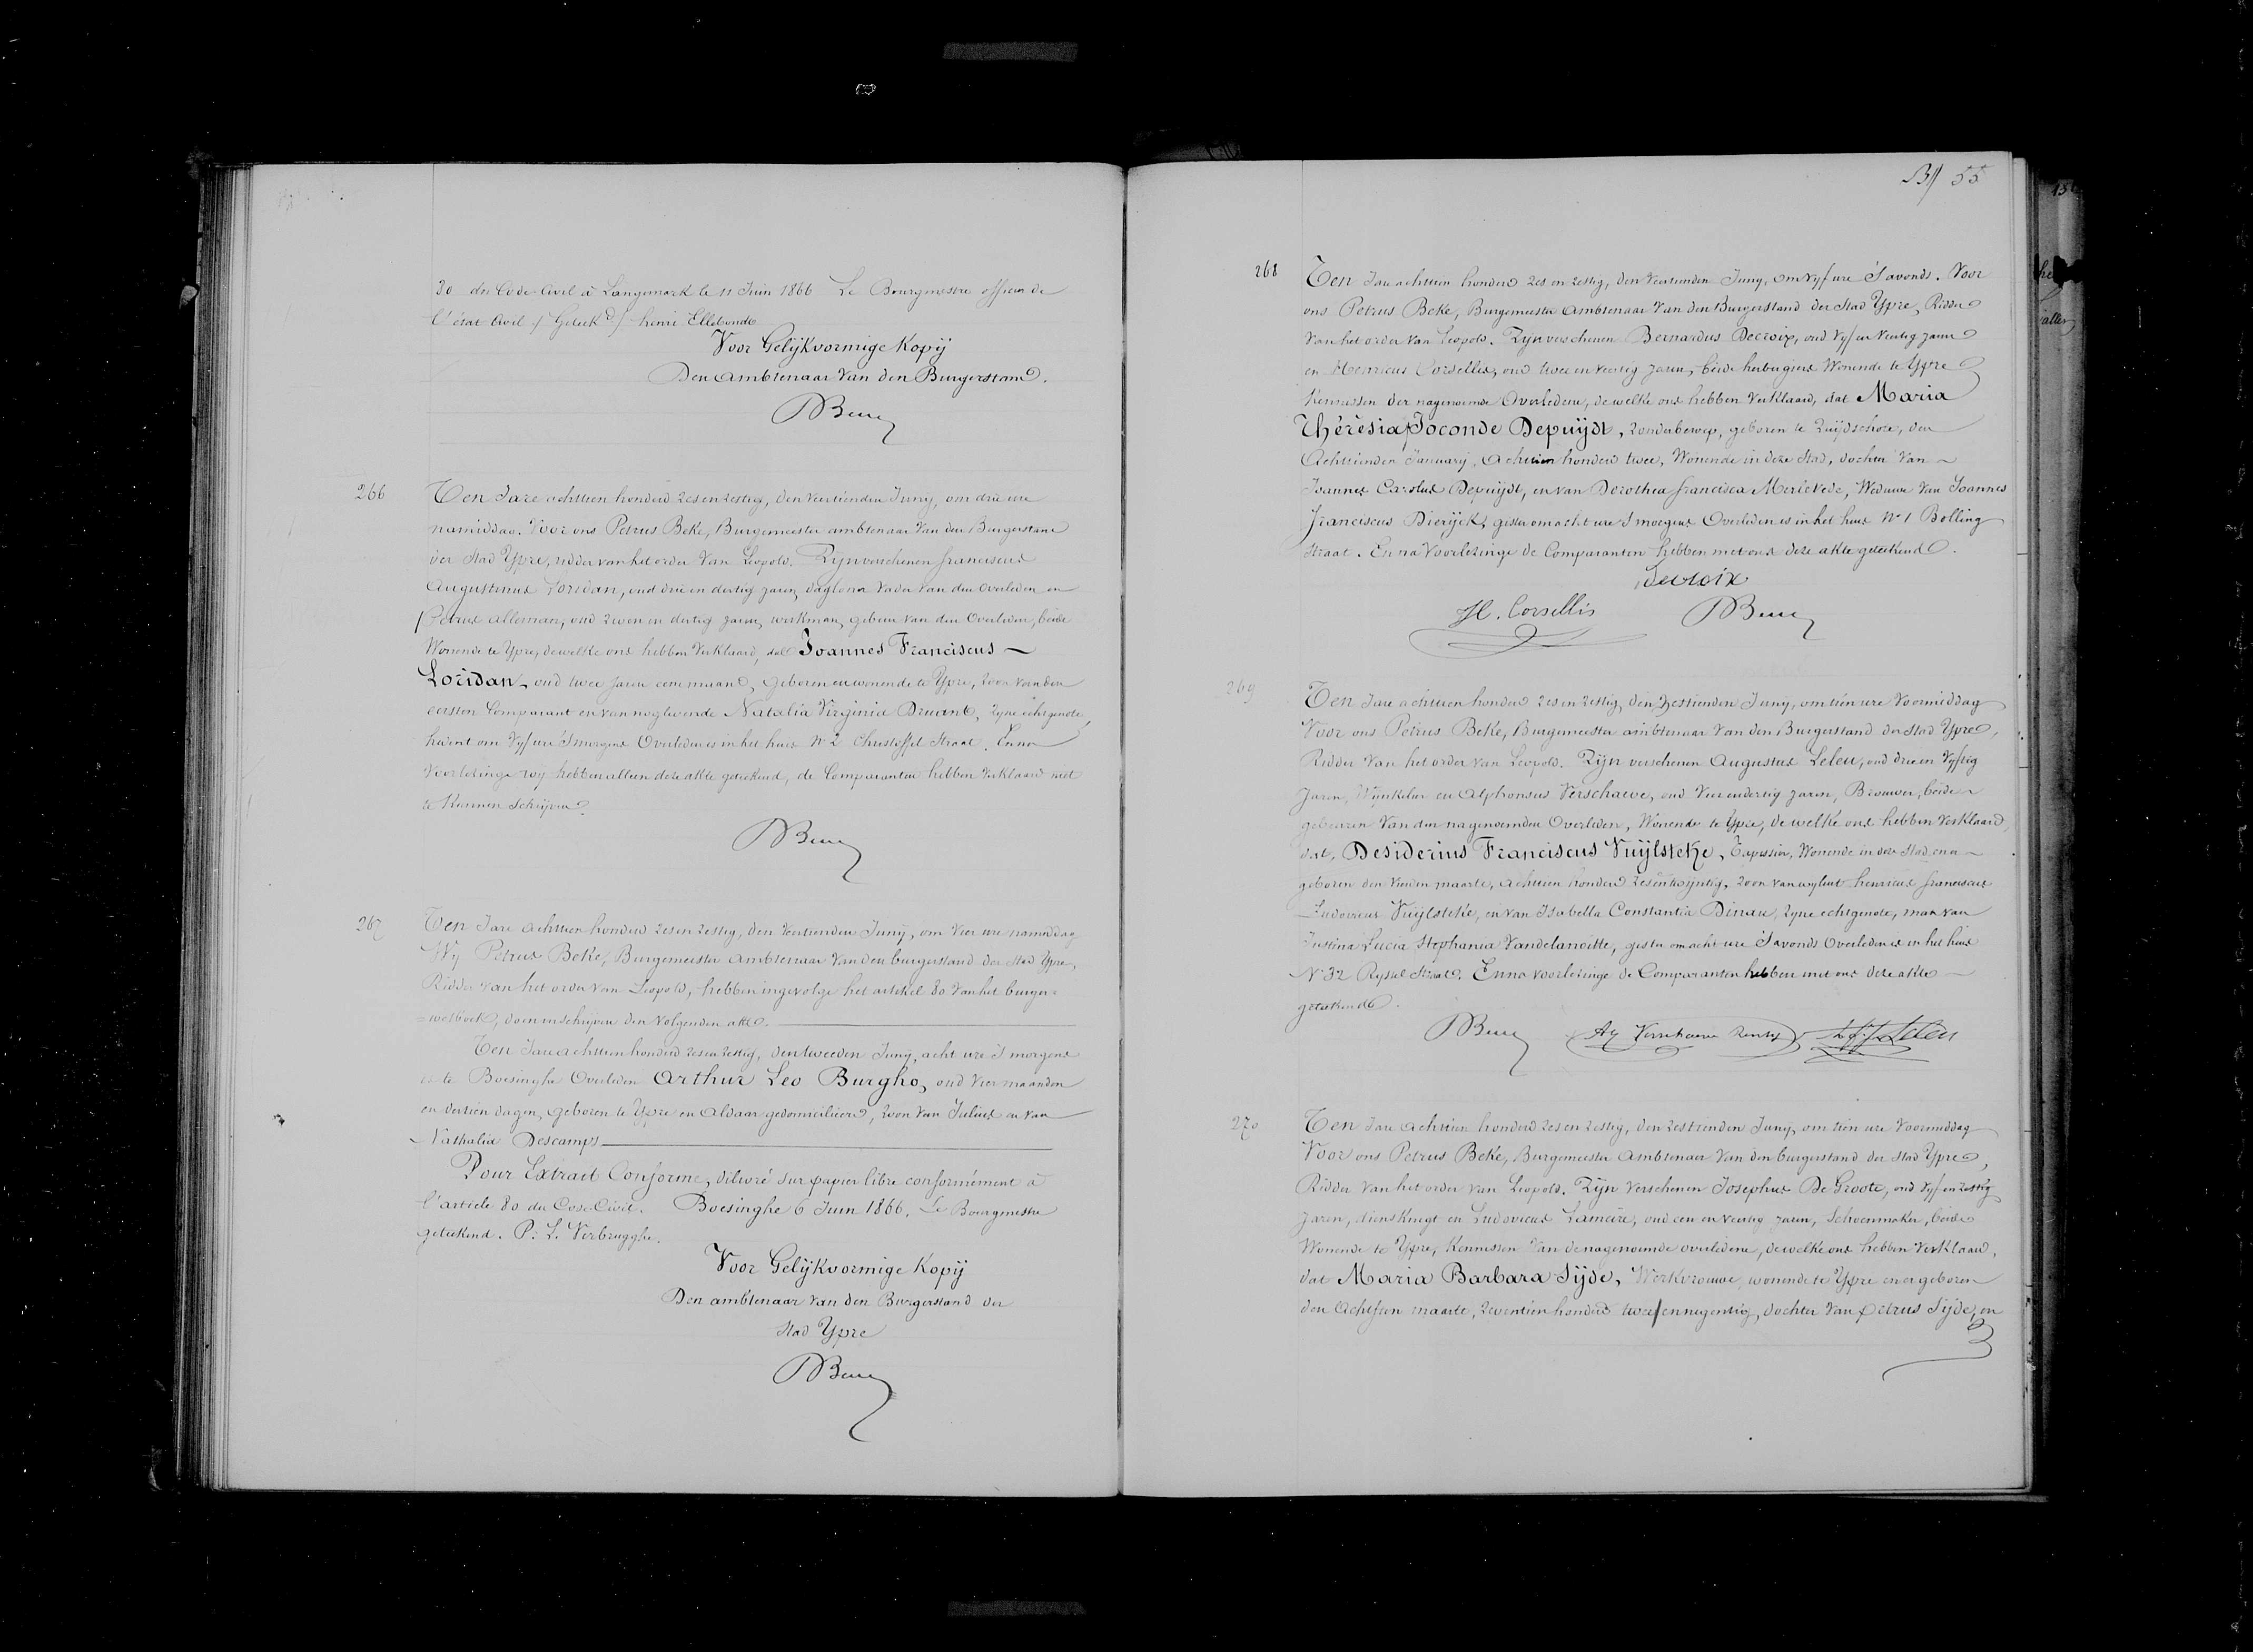 80 du Code Civil à Langemark le 11 Juin 1866 Le Bourgmestre officier de
l'état Civil /: Geteekd :/ henri Ellebondt
Voor Gelijkvormige Kopij
Den ambtenaar Van den Burgerstand.
PBeke
266
Ten Jare achttien honderd zes en zestig, den veertienden Junij, om drie ure
namiddag. Voor ons Petrus Beke, Burgemeester ambtenaar Van den Burgerstand
der Stad Ypre, ridder van het order Van Leopold. Zijn verschenen franciscus
Augustinus Loridan, oud drie en dertig jaren, daglooner Vader van den Overleden en
Petrus alleman, oud zeven en dertig jaren, werkman, gebuer van den Overleden, beide
Wonende te Ypre, dewelke ons hebben Verklaard, dat Joannes Franciscus
Loridan, oud twee jaren eene maand, geboren en wonende te Ypre, zoon van den
eersten Comparant en van noglevende Natalia Virginia Druant, zyne echtgenote,
heden om Vyf ure 's morgens Overleden is in het huis No 2 Christoffel Straat. En na
Voorlezinge wy hebben alleen deze akte geteekend, de Comparanten hebben Verklaard niet
te Kunnen Schrijven.
PBeke
267
Ten Jare achttien honderd zes en zestig, den Veertienden Junij, om Vier ure namiddag
Wy Petrus Beke, Burgemeester ambtenaar Van den burgerstand der Stad Ypre,
Ridder van het order van Leopold, hebben ingevolge het artikel 80 Van het burger=
=wetboek, doen inschrijven den Volgenden akte.
Ten Jare achttien honderd zes en zestig, den tweeden Junij, acht ure 's morgens
is te Boesinghe Overleden Arthur Leo Burgho, oud Vier maanden
en dertien dagen, geboren te Ypre en aldaar gedomicilieerd, zoon Van Julius en Van
Nathalie Descamps
Pour Extrait Conforme, délivré sur papier libre conformément à
l'article 80 du Code Civil. Boesinghe 6 Juin 1866. Le Bourgmestre
geteekend. P. L. Verbrugghe.
Voor Gelijkvormige Kopij
Den ambtenaar Van den Burgerstand der
Stad Ypre
PBeke
Bl 55
268
Ten Jare achttien honderd zes en zestig, den Veertienden Juny, om Vyf ure 's avonds. Voor
ons Petrus Beke, Burgemeester ambtenaar Van den Burgerstand der Stad Ypre, Ridder
Van het order Van Leopold. Zyn verschenen Bernardus Decroix, oud Vyf en Veertig jaren
en Henricus Corsellis, oud twee en veertig jaren, beide herbergiers Wonende te Ypre
Kennissen der nagenoemde Overledene, dewelke ons hebben Verklaard, dat Maria
Thérèsia Joconde Depuijdt, zonder beroep, geboren te Zuijdschote, den
Achttienden Januarij, Achttien honderd twee, Wonende in deze Stad, dochter Van
Joannes Carolus Depuijdt, en van Dorothea francisca Merlevede, Weduwe Van Joannes
franciscus Dierijck, gister om acht ure 's morgens Overleden is in het huis No 1 Bolling
Straat. En na Voorlezinge de Comparanten hebben met ons deze akte geteekend.
Decroix
H. Corsellis PBeke
269
Ten Jare achttien honderd zes en zestig, den Zestienden Juny, om tien ure Voormiddag
Voor ons Petrus Beke, Burgemeester ambtenaar Van den Burgerstand der Stad Ypre,
Ridder Van het order van Leopold. Zijn verschenen Augustus Leleu, oud drie en Vyftig
Jaren, Wynkelier en Alphonsus Verschaeve, oud Vier en dertig jaren, Brouwer, beide
gebuaren Van den nagenoemden Overleden, Wonende te Ypre, dewelke ons hebben Verklaard,
dat, Desiderius Franciscus Vuijlsteke, Tapissier, Wonende in deze Stad en er
geboren den Vierden maarte, achttien honderd zesentwijntig, zoon van wylent henricus franciscus
Ludovicus Vuijlsteke, en van Isabella Constantia Dinau, zyne echtgenote, man van
Justina Lucia Stephania Vandelanoitte, gister om acht ure 's avonds Overleden is in het huis
No 32 Ryssel Straat. En na voorlezinge de Comparanten hebben met ons deze akte
geteekend.
PBeke
270
Ten Jare achttien honderd zes en zestig, den zestienden Juny, om tien ure Voormiddag
Voor ons Petrus Beke, Burgemeester Ambtenaer Van den burgerstand der Stad Ypre,
Ridder van het order van Leopold. Zijn Verschenen Josephus De Groote, oud Vyf en zestig
Jaren, dienstknegt en Ludovicus Lameire, oud een en veertig jaren, Schoenmaker, beide
Wonende te Ypre, Kennissen Van de nagenoemde overledene, dewelke ons hebben Verklaard,
dat Maria Barbara Sijde, Werkvrouwe, wonende te Ypre en er geboren
den Achtsten maarte, zeventien honderd twee en negentig, dochter Van Petrus Sijde, en